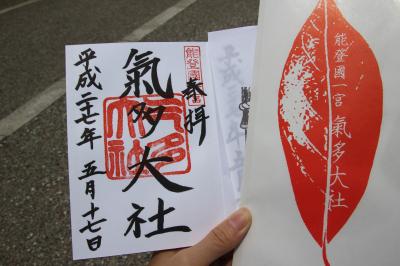 奉拝
氣多大社
平成二十七年 五月十七日
能登國一宮
氣多大社
能登國一宮 氣多大社